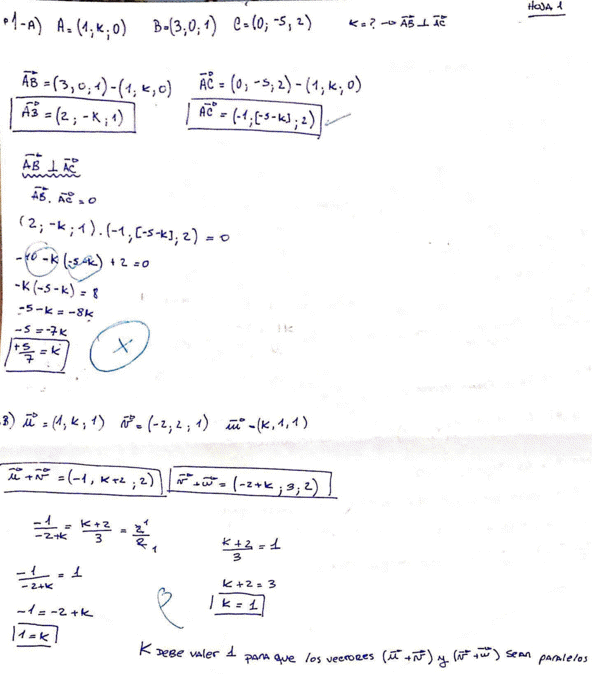 HOJA 1
1-A) A=(1;K;0) B=(3;0;1) C=(0;-5;2) K=? → AB ⊥ AC
AB=(3,0,1)-(1,K,0) AC=(0,-5,2)-(1,K,0)
AB=(2;-K;1) AC=(-1;[-5-K];2)
AB ⊥ AC
AB . AC=0
(2;-K;1).(-1,[-5-K];2)=0
-10-K(-5-K)+2=0
-K(-5-K)=8
-5-K=-8K
-5=-7K
+5/7=K
X
B) u=(1,K,1) v=(-2;2;1) w=(K,1,1)
u+v=(-1,K+2;2) v+w=(-2+K;3;2)
-1/-2+K = K+2/3 = 2/2 1 1
K+2/3=1
-1/-2+K=1
K+2=3
-1=-2+K
K=1
1=K
K DEBE VALER 1 PARA QUE LOS VECTORES (u+v) y (v+w) SEAN PARALELOS